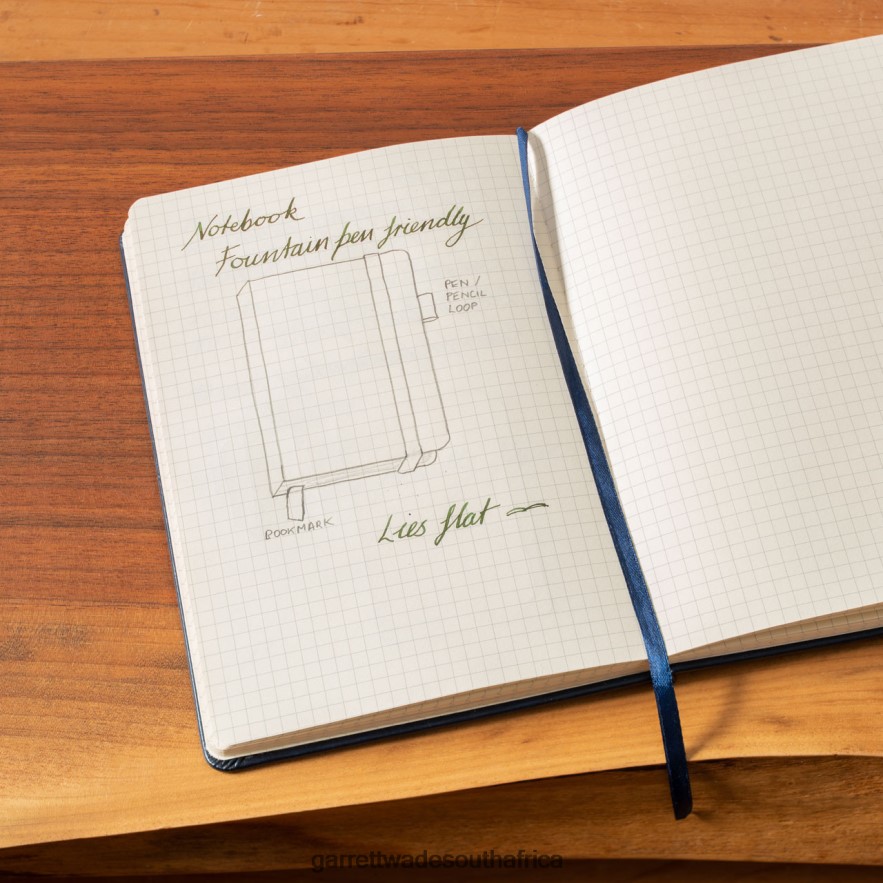 Notebook
Fountain pen friendly
PEN /
PENCIL
LOOP
BOOKMARK
Lies flat
garrettwadesouthafrica